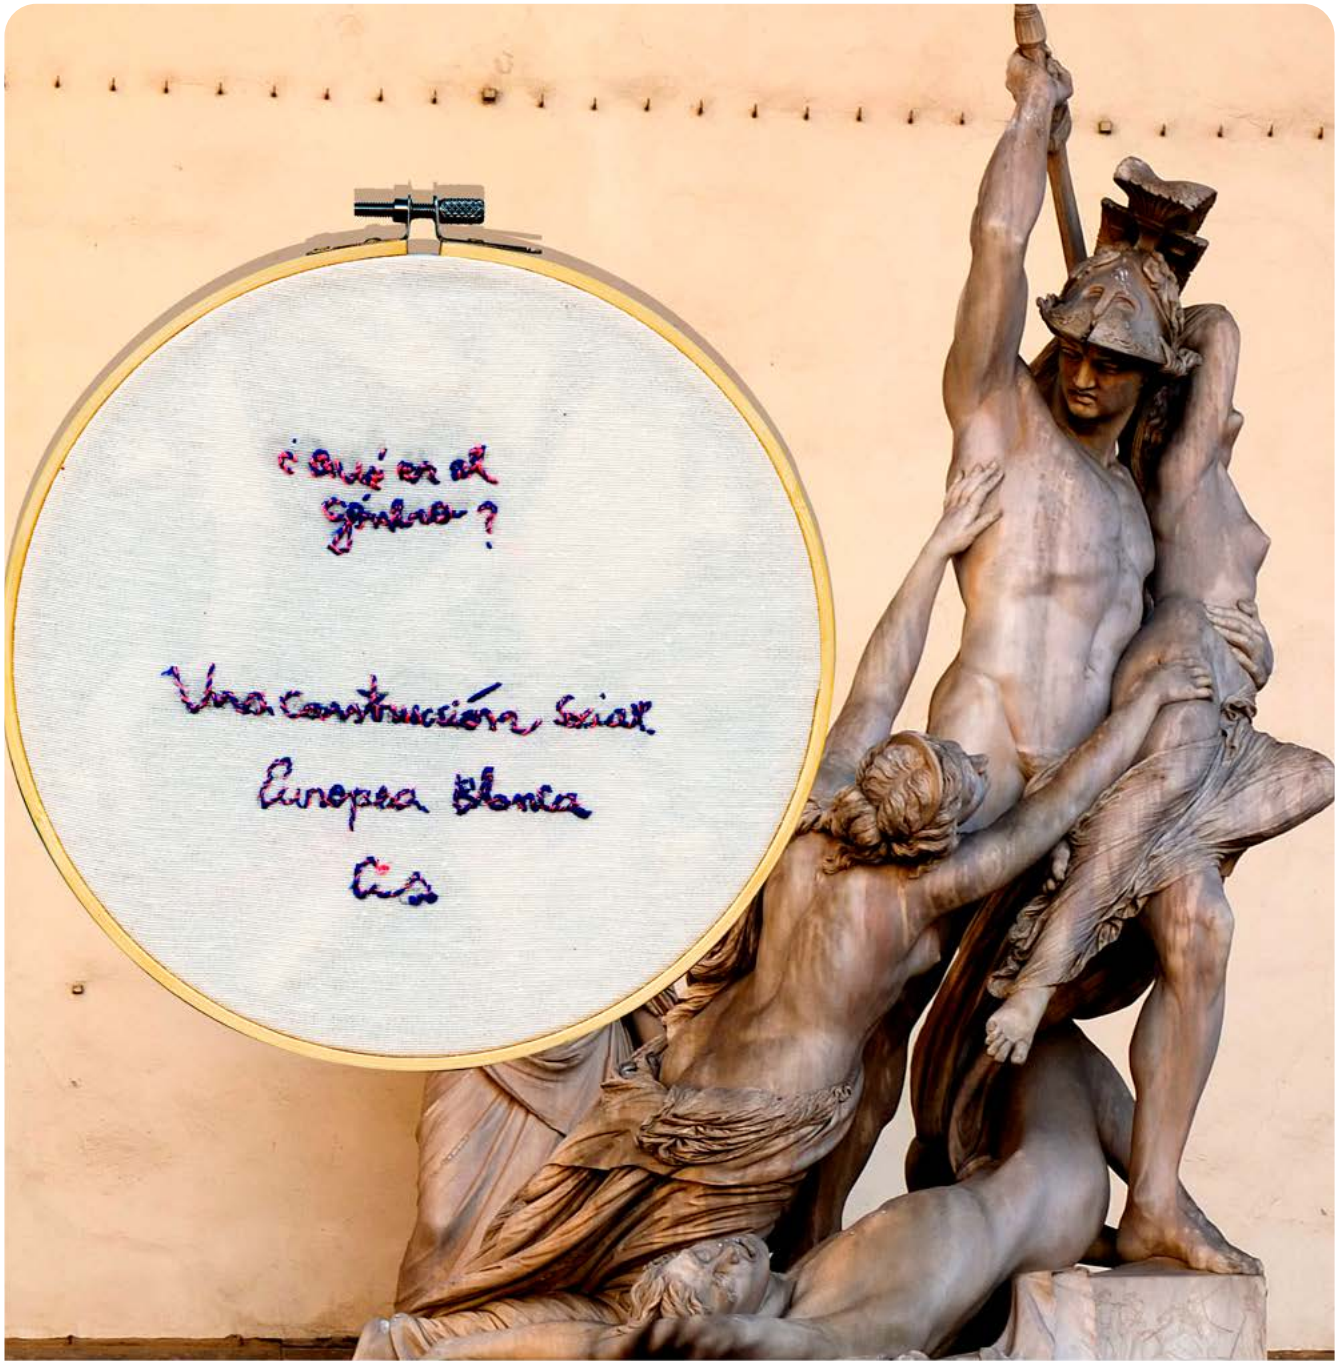 ¿Qué es el
género?
Una construcción Social
Europea Blanca
Cis